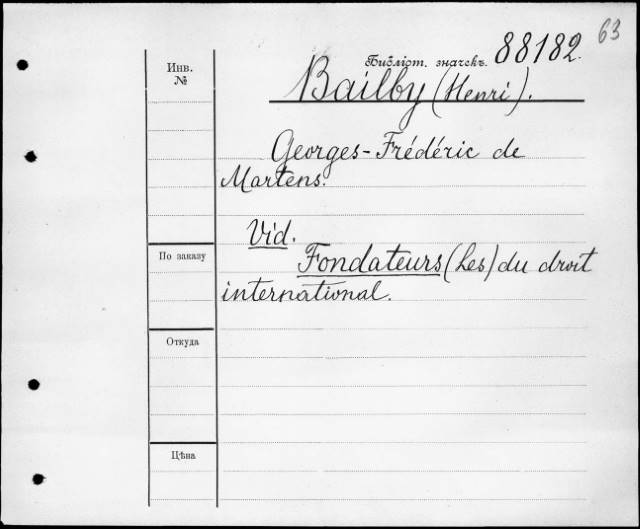 63
Библіот. значекъ. 88182.
Инв.
№
Bailby (Henri).
Georges-Frédéric de
Martens.
Vid.
По заказу
Fondateurs (Les) du droit
international.
Откуда
Цѣна